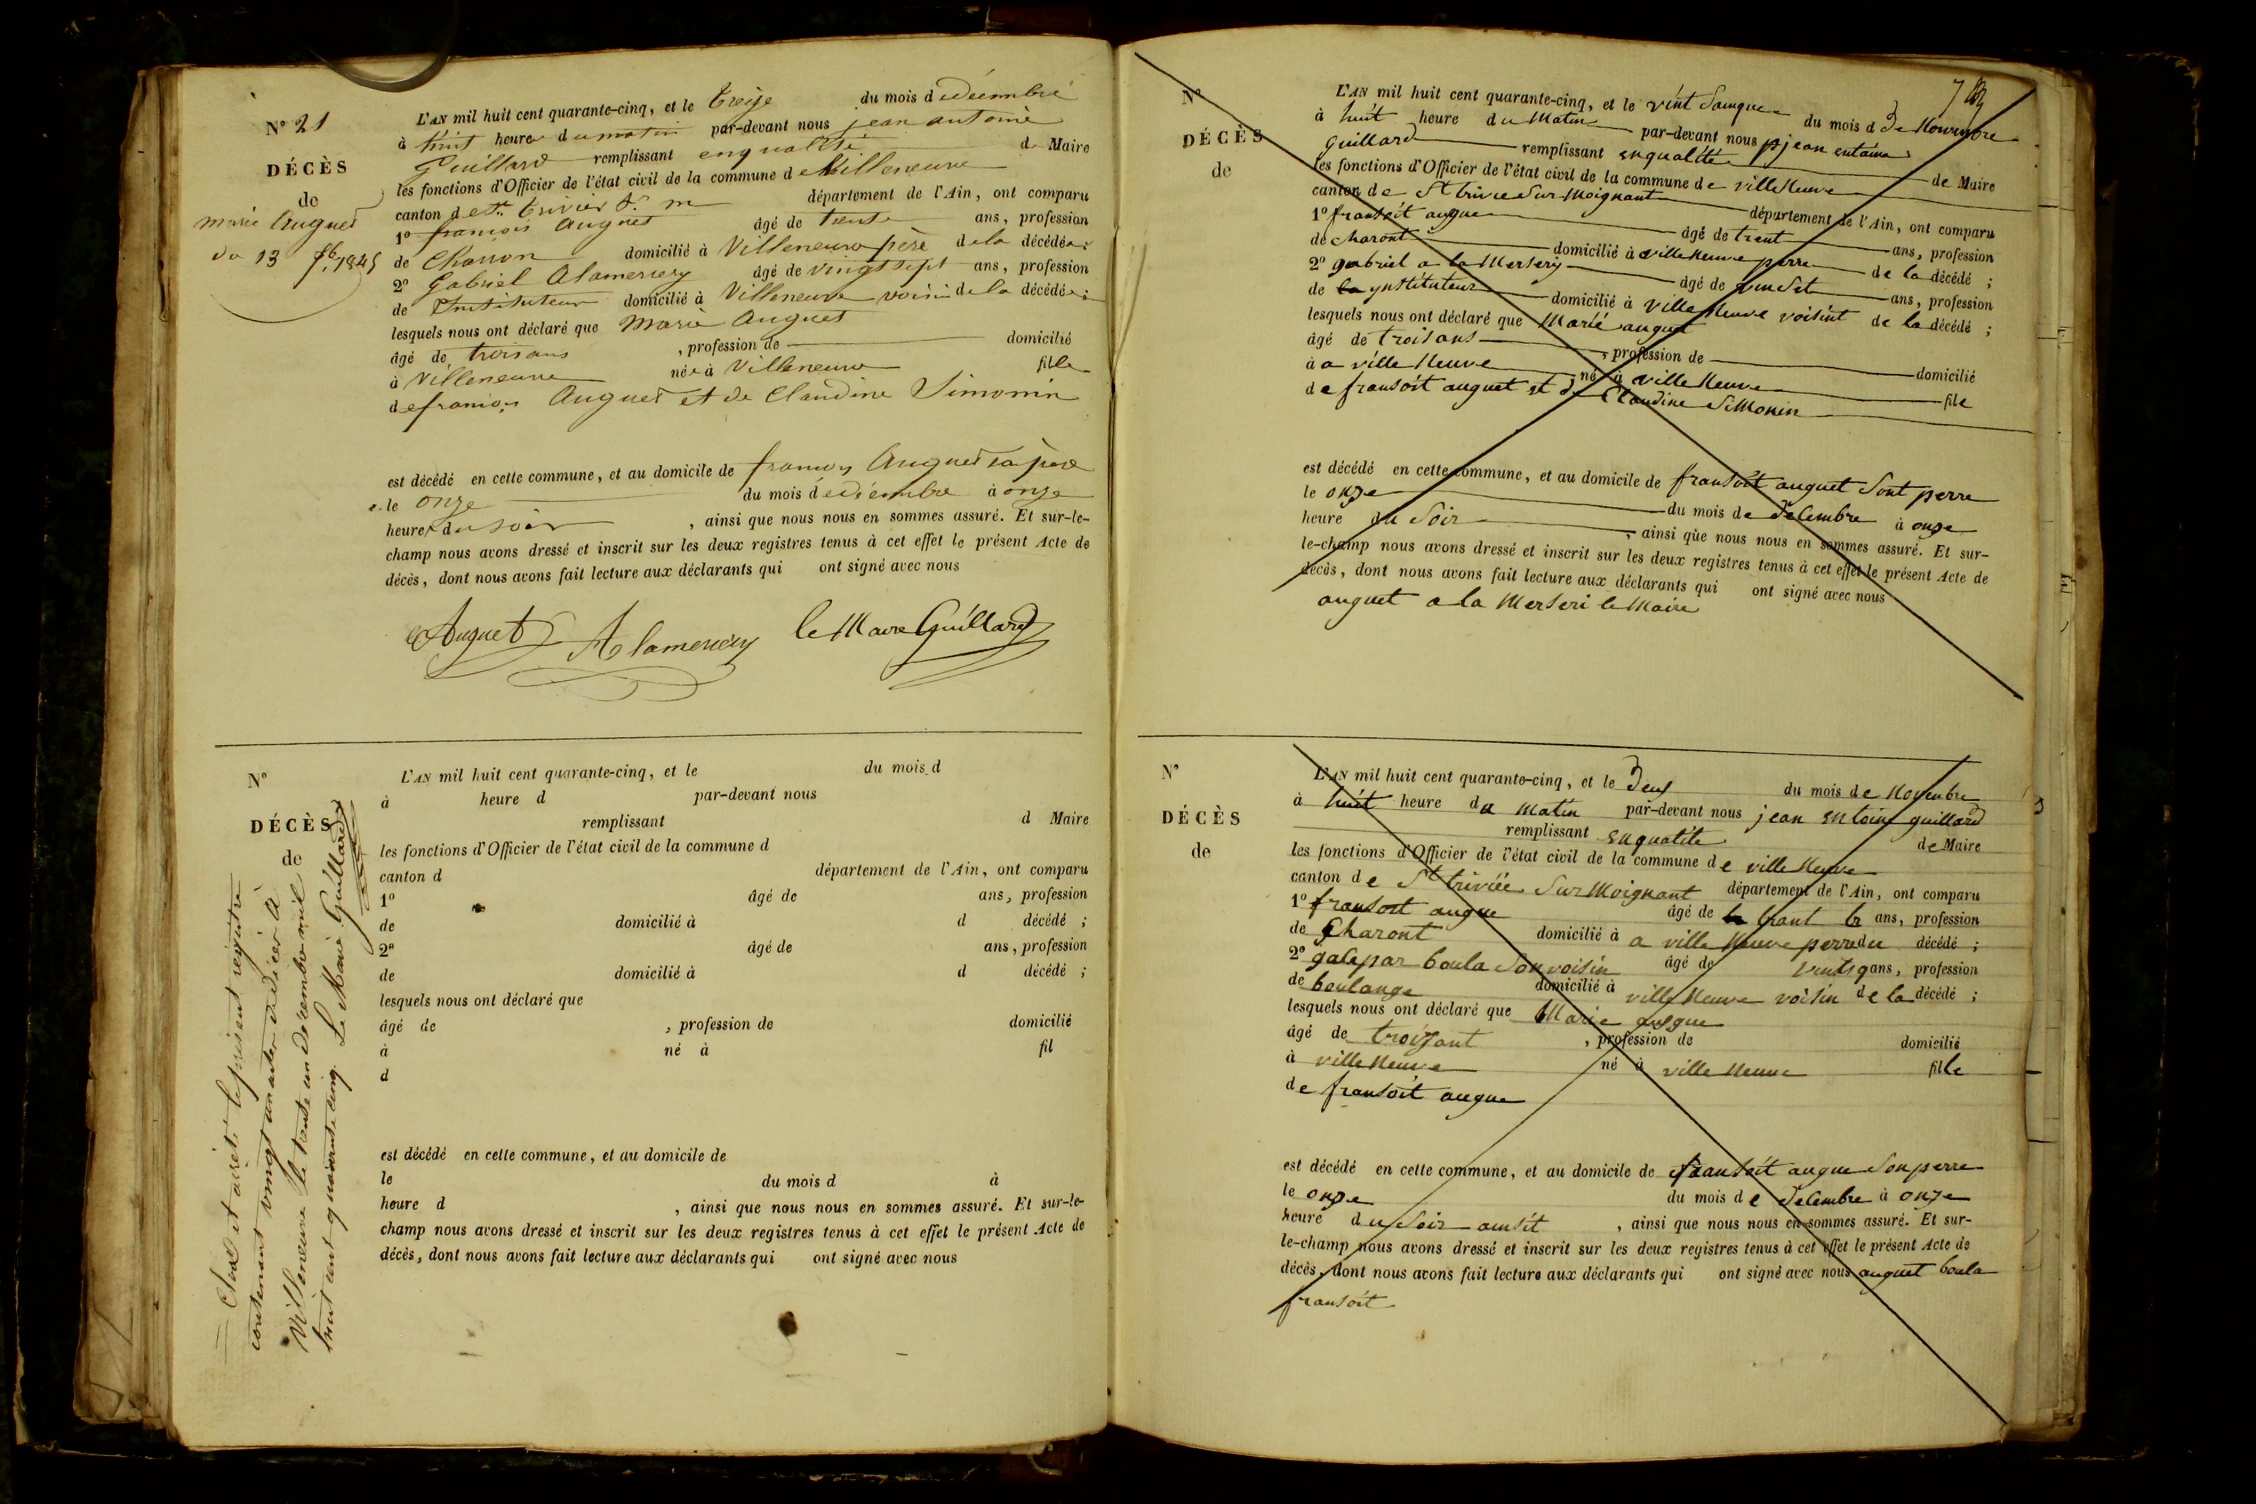 N° 21
DÉCÈS
de
marie Auguet
du 13 Xbre 1845
L'AN mil huit cent quarante-cinq, et le treize du mois d e décembre
à huit heures du matin par-devant nous jean antoine
Guillard remplissant en qualité d Maire
les fonctions d'Officier de l'état civil de la commune d e Villeneuve
canton d e St trivier s. m département de l'Ain, ont comparu
1° françois Auguet âgé de trente ans, profession
de Charron domicilié à Villeneuve père de la décédée ;
2° Gabriel Alamercery âgé de vingt sept ans, profession
de Instituteur domicilié à Villeneuve voisin de la décédée ;
lesquels nous ont déclaré que Marie Auguet
âgé de trois ans , profession de domicilié
à Villeneuve née à Villeneuve fille
de françois Auguet et de Claudine Simonin
est décédé en cette commune, et au domicile de françois Auguet sa père
e. le onze du mois de décembre à onze
heures du soir , ainsi que nous nous en sommes assuré. Et sur-le-
champ nous avons dressé et inscrit sur les deux registres tenus à cet effet le présent Acte de
décès, dont nous avons fait lecture aux déclarants qui ont signé avec nous
Auguet Alamercery le Maire Guillard
N°
DÉCÈS
de
L'AN mil huit cent quarante-cinq, et le du mois d
à heure d par-devant nous
remplissant d Maire
les fonctions d'Officier de l'état civil de la commune d
canton d département de l'Ain, ont comparu
1° âgé de ans, profession
de domicilié à d décédé ;
2° âgé de ans, profession
de domicilié à d décédé ;
lesquels nous ont déclaré que
âgé de , profession de domicilié
à né à fil
d
est décédé en cette commune, et au domicile de
le du mois d à
heure d , ainsi que nous nous en sommes assuré. Et sur-le-
champ nous avons dressé et inscrit sur les deux registres tenus à cet effet le présent Acte de
décès, dont nous avons fait lecture aux déclarants qui ont signé avec nous
Clos et arrêté le présent registre
contenant vingt un actes de décès à
Villeneuve le trente un décembre mil
huit cent quarante cinq. Le Maire Guillard
N°
DÉCÈS
de
L'AN mil huit cent quarante-cinq, et le vint Sainque du mois d de Novembre
à huit heure du Matin par-devant nous jean entaine
Guillard remplissant enqualité de Maire
les fonctions d'Officier de l'état civil de la commune de ville Neuve
canton de St trivie Sur Moignant département de l'Ain, ont comparu
1° fransoit augue âgé de trent ans, profession
de Charont domicilié à a ville Neuve perre de la décédé ;
2° gabriel a la Mersery âgé de vin Set ans, profession
de ynstituteur domicilié à ville Neuve voisint de la décédé ;
lesquels nous ont déclaré que Marié auguet
âgé de trois ans , profession de domicilié
à a ville Neuve né à ville Neuve file
de fransoit auguet et de Claudine SiMonin
est décédé en cette commune, et au domicile de fransoit auguet Sont perre
le onze du mois de deCembre à onze
heure du Soir , ainsi que nous nous en sommes assuré. Et sur-
le-champ nous avons dressé et inscrit sur les deux registres tenus à cet effet le présent Acte de
décès, dont nous avons fait lecture aux déclarants qui ont signé avec nous
auguet a la Merseri le Maire
N°
DÉCÈS
de
L'AN mil huit cent quarante-cinq, et le deux du mois de Novembre
à huit heure du matin par-devant nous jean entoine guillard
remplissant enqualite de Maire
les fonctions d'Officier de l'état civil de la commune de ville Neuve
canton de St triviée Sur Moignant département de l'Ain, ont comparu
1° fransoit augue âgé de trant ans, profession
de Charont domicilié à a ville Neuve perre du décédé ;
2° boula Son voisin âgé de ans, profession
de boulange domicilié à ville Neuve voisin de la décédé ;
lesquels nous ont déclaré que Marie augue
âgé de troizant , profession de domicilié
à ville Neuve né à ville Neuve fille
de fransoit augue
est décédé en cette commune, et au domicile de fransoit augue Son perre
le onze du mois de deCembre à onze
heure du Soir ainsit , ainsi que nous nous en sommes assuré. Et sur-
le-champ nous avons dressé et inscrit sur les deux registres tenus à cet effet le présent Acte de
décès, dont nous avons fait lecture aux déclarants qui ont signé avec nous auguet boula
fransoit